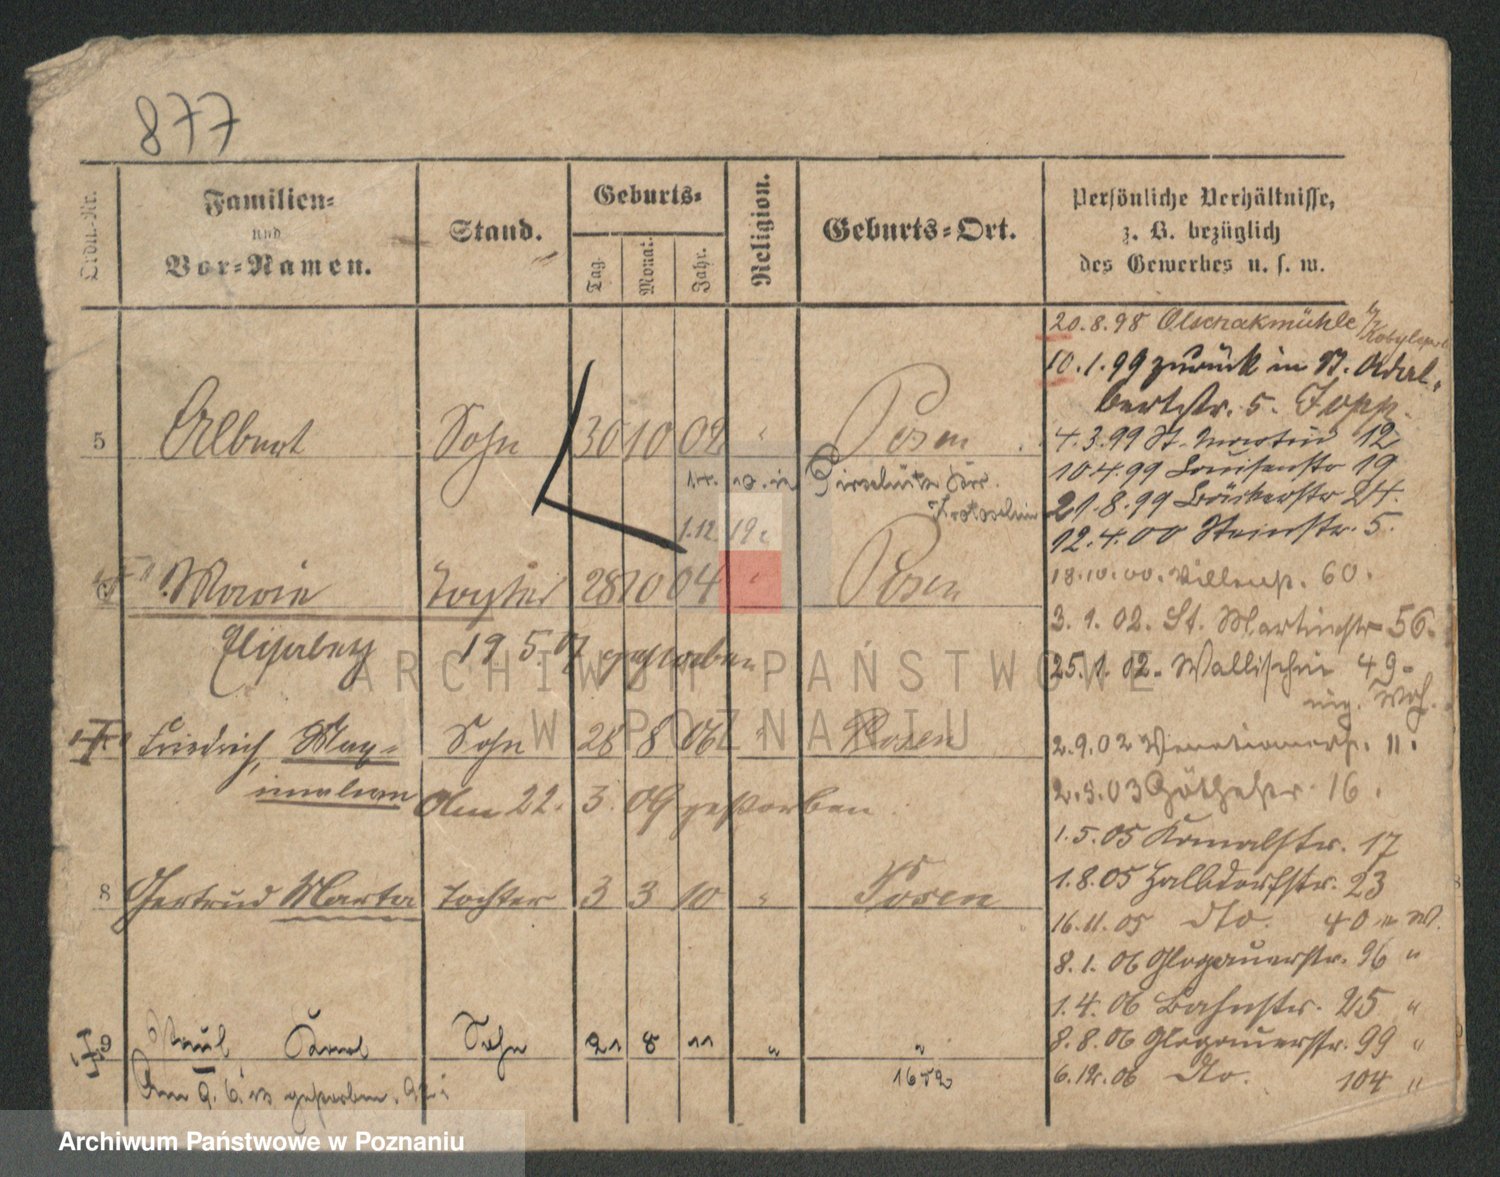 877
Ordn.-Nr.
Familien-
und
Vor-Namen.
Stand.
Geburts-
Tag.
Monat.
Jahr.
Religion.
Geburts-Ort.
Persönliche Verhältnisse,
z. B. bezüglich
des Gewerbes u. s. w.
5 Albert Sohn 30 10 02 " Posen
Krotoschin
1.12 19
Marie Tochter 28 10 04 " Posen
Elisabeth 19 5. 07 gestorben
Friedrich, Max- Sohn 28 8 06 " Posen
imilian Am 22. 3. 09 gestorben
8 Gertrud Marta Tochter 3 3 10 " Posen
9 Paul Karl Sohn 21 8 11 " "
Am 9. 6. 13 gestorben.
1652
20.8.98 Olschakmühle
10.1.99 zurück in St. Adal-
bertstr. 5. Topp.
4.3.99 St. Martin 12
10.4.99 Louisenstr 19
21.8.99 Bäckerstr 24.
12.4.00 Steinstr. 5.
18.10.00. Villenst. 60.
3.1.02. St. Martinstr 56.
25.1.02. Wallischei 49-
2.9.02 Venetianerstr. 11.
2.5.03 Göthestr. 16.
1.5.05 Kanalstr. 17
1.8.05 Halbdorfstr. 23
16.11.05 dto. 40 W.
8.1.06 Glogauerstr. 96 "
1.4.06 Bahnstr. 25 "
8.8.06 Glogauerstr. 99 "
6.12.06 dto. 104 "
ARCHIWUM PAŃSTWOWE
W POZNANIU
Archiwum Państwowe w Poznaniu